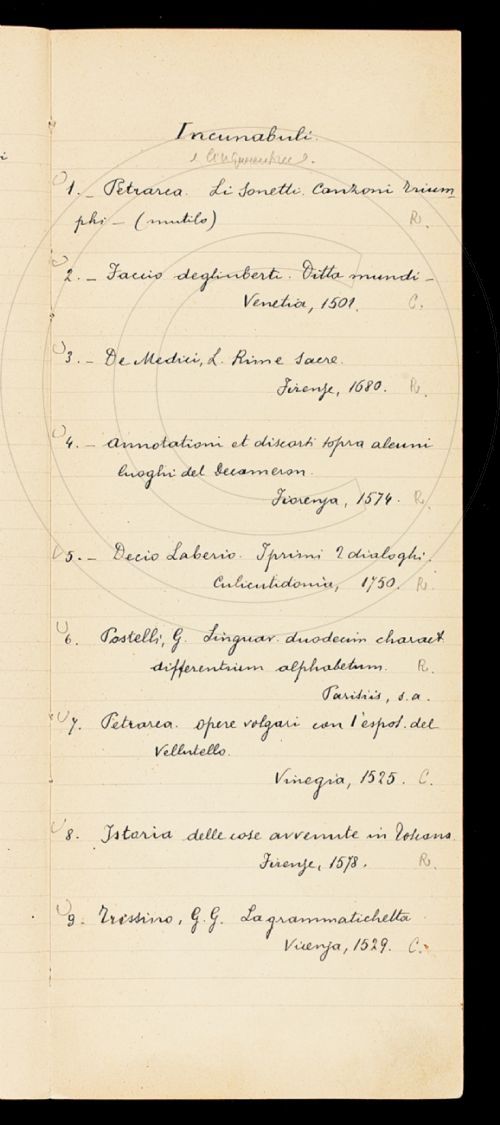 Incunabuli.
1. - Petrarca. Li Sonetti. Canzoni Trium
phi - (mutilo) R.
2. - Faccio degliuberti. Ditta mundi -
Venetia, 1501. C.
3. - De Medici, L. Rime sacre.
Firenze, 1680. R.
4. - Annotationi et discorsi sopra alcuni
luoghi del Decameron.
Fiorenza, 1574. R.
5. - Decio Laberio. I primi 2 dialoghi.
Culicutidonia, 1750. R.
6. Postelli, G. Linguar. duodecim charact.
differentium alphabetum. R.
Parisiis, s.a.
7. Petrarca. Opere volgari con l'espos. del
Vellutello.
Vinegia, 1525. C.
8. Istoria delle cose avvenute in Toscana.
Firenze, 1578. R.
9. Trissino, G.G. La grammatichetta
Vicenza, 1529. C.